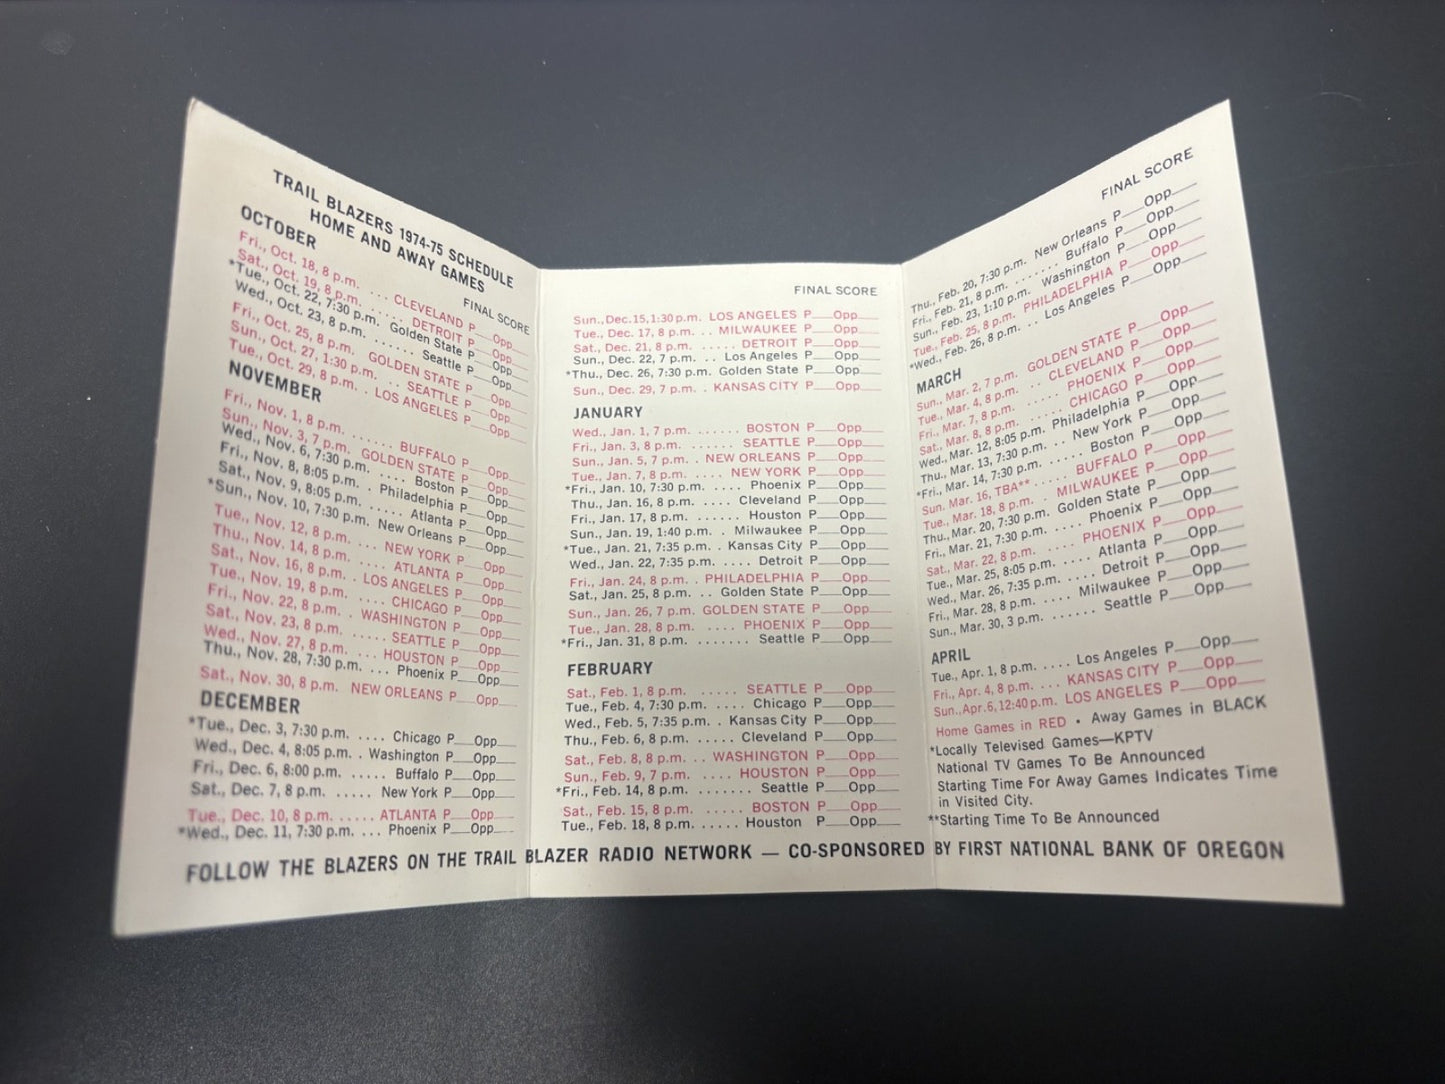 TRAIL BLAZERS 1974-75 SCHEDULE
HOME AND AWAY GAMES
OCTOBER
FINAL SCORE
Fri., Oct. 18, 8 p.m. ... CLEVELAND P___Opp___
Sat., Oct. 19, 8 p.m. ..... DETROIT P___Opp___
*Tue., Oct. 22, 7:30 p.m. Golden State P___Opp___
Wed., Oct. 23, 8 p.m. ...... Seattle P___Opp___
Fri., Oct. 25, 8 p.m. GOLDEN STATE P___Opp___
Sun., Oct. 27, 1:30 p.m. .. SEATTLE P___Opp___
Tue., Oct. 29, 8 p.m. LOS ANGELES P___Opp___
NOVEMBER
Fri., Nov. 1, 8 p.m. ....... BUFFALO P___Opp___
Sun., Nov. 3, 7 p.m. GOLDEN STATE P___Opp___
Wed., Nov. 6, 7:30 p.m. .... Boston P___Opp___
Fri., Nov. 8, 8:05 p.m. . Philadelphia P___Opp___
Sat., Nov. 9, 8:05 p.m. ..... Atlanta P___Opp___
*Sun., Nov. 10, 7:30 p.m. New Orleans P___Opp___
Tue., Nov. 12, 8 p.m. ... NEW YORK P___Opp___
Thu., Nov. 14, 8 p.m. .... ATLANTA P___Opp___
Sat., Nov. 16, 8 p.m. . LOS ANGELES P___Opp___
Tue., Nov. 19, 8 p.m. .... CHICAGO P___Opp___
Fri., Nov. 22, 8 p.m. . WASHINGTON P___Opp___
Sat., Nov. 23, 8 p.m. .... SEATTLE P___Opp___
Wed., Nov. 27, 8 p.m. ... HOUSTON P___Opp___
Thu., Nov. 28, 7:30 p.m. ... Phoenix P___Opp___
Sat., Nov. 30, 8 p.m. NEW ORLEANS P___Opp___
DECEMBER
*Tue., Dec. 3, 7:30 p.m. .... Chicago P___Opp___
Wed., Dec. 4, 8:05 p.m. . Washington P___Opp___
Fri., Dec. 6, 8:00 p.m. ..... Buffalo P___Opp___
Sat., Dec. 7, 8 p.m. ..... New York P___Opp___
Tue., Dec. 10, 8 p.m. ..... ATLANTA P___Opp___
*Wed., Dec. 11, 7:30 p.m. ... Phoenix P___Opp___
FINAL SCORE
Sun., Dec. 15, 1:30 p.m. LOS ANGELES P___Opp___
Tue., Dec. 17, 8 p.m. .. MILWAUKEE P___Opp___
Sat., Dec. 21, 8 p.m. ..... DETROIT P___Opp___
Sun., Dec. 22, 7 p.m. .. Los Angeles P___Opp___
*Thu., Dec. 26, 7:30 p.m. Golden State P___Opp___
Sun., Dec. 29, 7 p.m. . KANSAS CITY P___Opp___
JANUARY
Wed., Jan. 1, 7 p.m. ...... BOSTON P___Opp___
Fri., Jan. 3, 8 p.m. ...... SEATTLE P___Opp___
Sun., Jan. 5, 7 p.m. . NEW ORLEANS P___Opp___
Tue., Jan. 7, 8 p.m. .... NEW YORK P___Opp___
*Fri., Jan. 10, 7:30 p.m. .... Phoenix P___Opp___
Thu., Jan. 16, 8 p.m. .... Cleveland P___Opp___
Fri., Jan. 17, 8 p.m. ...... Houston P___Opp___
Sun., Jan. 19, 1:40 p.m. . Milwaukee P___Opp___
*Tue., Jan. 21, 7:35 p.m. . Kansas City P___Opp___
Wed., Jan. 22, 7:35 p.m. .... Detroit P___Opp___
Fri., Jan. 24, 8 p.m. . PHILADELPHIA P___Opp___
Sat., Jan. 25, 8 p.m. .. Golden State P___Opp___
Sun., Jan. 26, 7 p.m. GOLDEN STATE P___Opp___
Tue., Jan. 28, 8 p.m. ..... PHOENIX P___Opp___
*Fri., Jan. 31, 8 p.m. ....... Seattle P___Opp___
FEBRUARY
Sat., Feb. 1, 8 p.m. ..... SEATTLE P___Opp___
Tue., Feb. 4, 7:30 p.m. .... Chicago P___Opp___
Wed., Feb. 5, 7:35 p.m. . Kansas City P___Opp___
Thu., Feb. 6, 8 p.m. ..... Cleveland P___Opp___
Sat., Feb. 8, 8 p.m. .. WASHINGTON P___Opp___
Sun., Feb. 9, 7 p.m. ..... HOUSTON P___Opp___
*Fri., Feb. 14, 8 p.m. ....... Seattle P___Opp___
Sat., Feb. 15, 8 p.m. ...... BOSTON P___Opp___
Tue., Feb. 18, 8 p.m. ..... Houston P___Opp___
FINAL SCORE
Thu., Feb. 20, 7:30 p.m. New Orleans P___Opp___
Fri., Feb. 21, 8 p.m. ...... Buffalo P___Opp___
Sun., Feb. 23, 1:10 p.m. Washington P___Opp___
Tue., Feb. 25, 8 p.m. PHILADELPHIA P___Opp___
*Wed., Feb. 26, 8 p.m. ... Los Angeles P___Opp___
MARCH
Sun., Mar. 2, 7 p.m. GOLDEN STATE P___Opp___
Tue., Mar. 4, 8 p.m. ... CLEVELAND P___Opp___
Fri., Mar. 7, 8 p.m. ..... PHOENIX P___Opp___
Sat., Mar. 8, 8 p.m. ..... CHICAGO P___Opp___
Wed., Mar. 12, 8:05 p.m. Philadelphia P___Opp___
Thu., Mar. 13, 7:30 p.m. .. New York P___Opp___
*Fri., Mar. 14, 7:30 p.m. .... Boston P___Opp___
Sun. Mar. 16, TBA** ..... BUFFALO P___Opp___
Tue., Mar. 18, 8 p.m. . MILWAUKEE P___Opp___
Thu., Mar. 20, 7:30 p.m. Golden State P___Opp___
Fri., Mar. 21, 7:30 p.m. .... Phoenix P___Opp___
Sat., Mar. 22, 8 p.m. .... PHOENIX P___Opp___
Tue., Mar. 25, 8:05 p.m. .... Atlanta P___Opp___
Wed., Mar. 26, 7:35 p.m. .... Detroit P___Opp___
Fri., Mar. 28, 8 p.m. .... Milwaukee P___Opp___
Sun., Mar. 30, 3 p.m. ...... Seattle P___Opp___
APRIL
Tue., Apr. 1, 8 p.m. ..... Los Angeles P___Opp___
Fri., Apr. 4, 8 p.m. ... KANSAS CITY P___Opp___
Sun., Apr. 6, 12:40 p.m. LOS ANGELES P___Opp___
Home Games in RED • Away Games in BLACK
*Locally Televised Games—KPTV
National TV Games To Be Announced
Starting Time For Away Games Indicates Time
in Visited City.
**Starting Time To Be Announced
FOLLOW THE BLAZERS ON THE TRAIL BLAZER RADIO NETWORK — CO-SPONSORED BY FIRST NATIONAL BANK OF OREGON